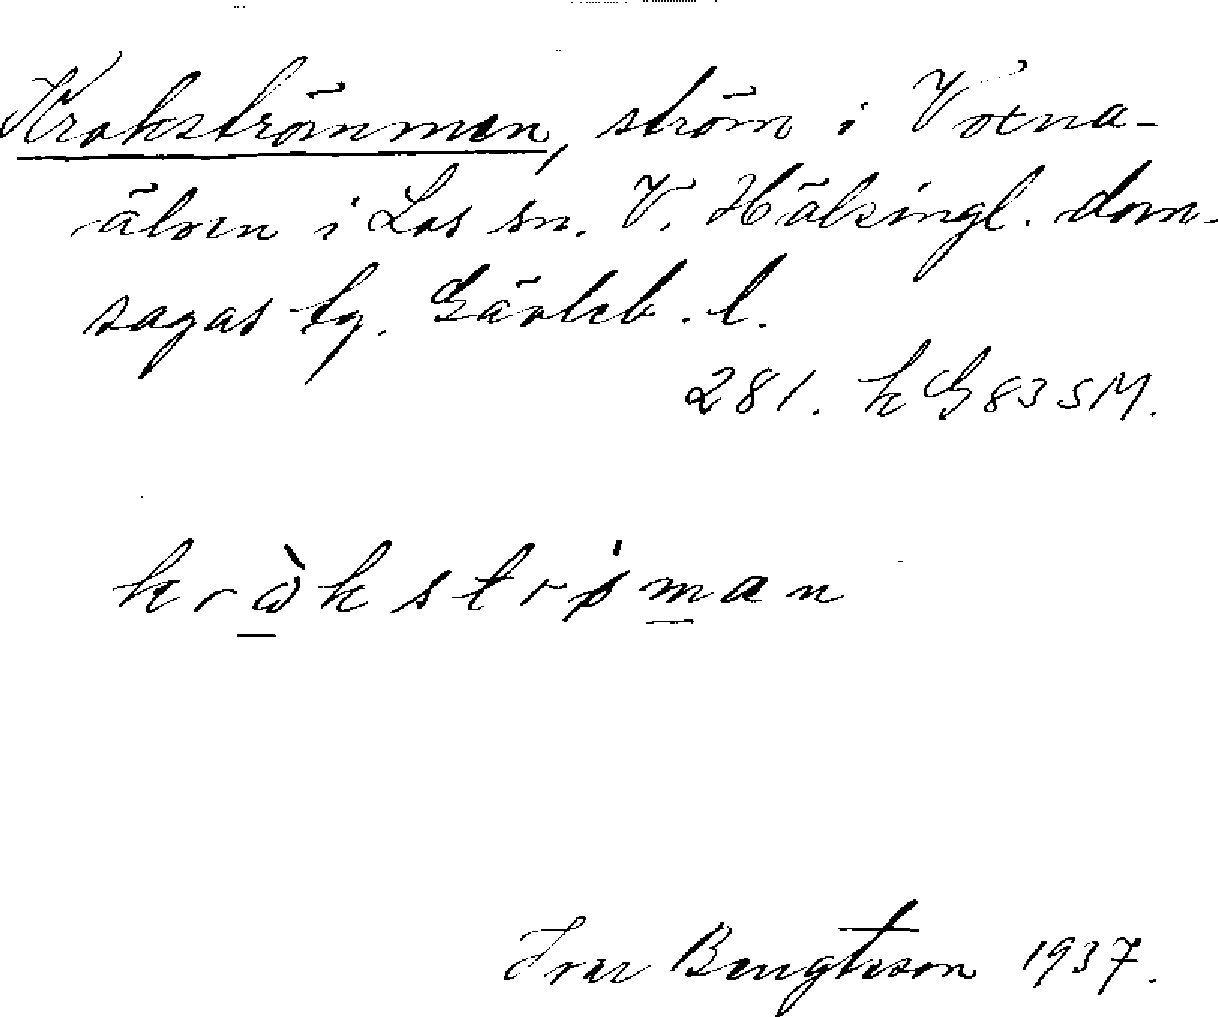 Krokströmmen, ström i Voxna-
älven i Los sn. V. Hälsingl. dom-
sagas tg. Gävleb. l.
281. k G 83 SM.
krὼkstrǿman
Ivar Bengtsson 1937.